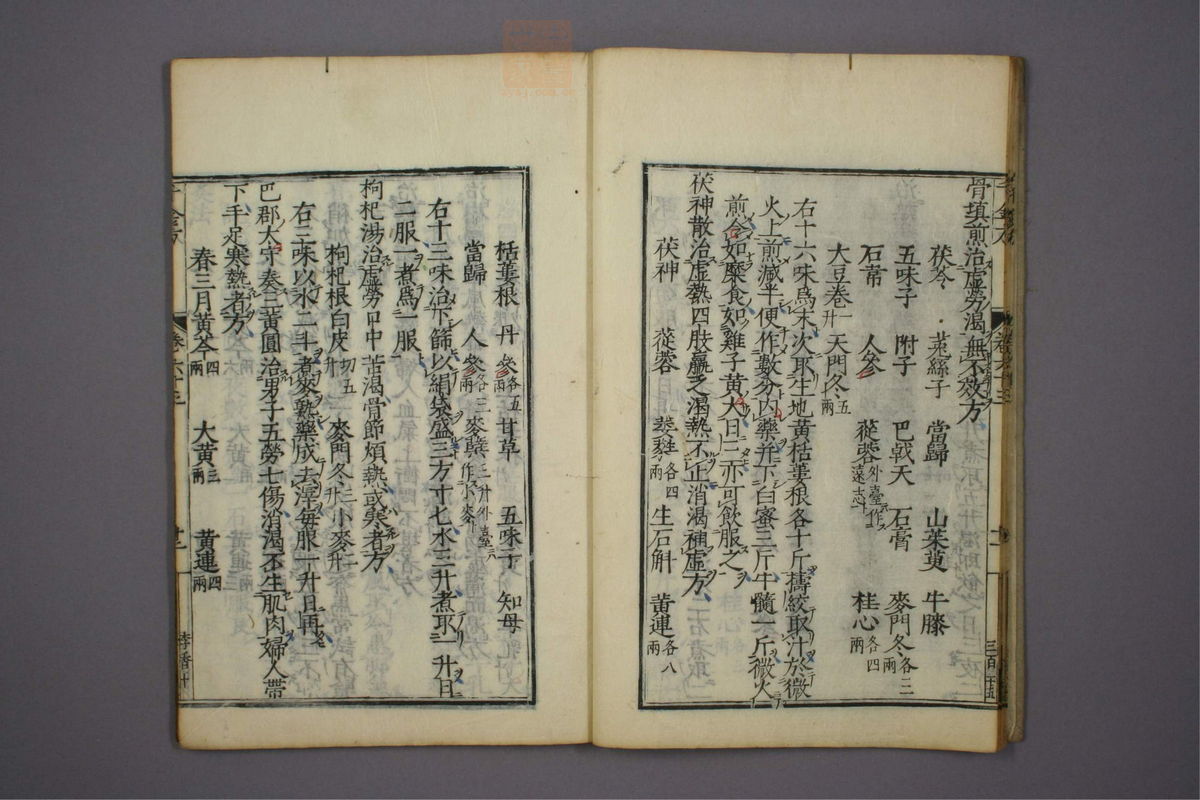 骨填煎治虛勞渴無不效方
茯苓 菟絲子 當歸 山茱萸 牛膝
五味子 附子 巴戟天 石膏 麥門冬各三兩
石韋 人參 蓯蓉外臺作遠志 桂心各四兩
大豆卷一升 天門冬五兩
右十六味爲末次取生地黃栝蔞根各十斤擣絞取汁於微
火上煎減半便作數分內藥并下白蜜三斤牛髓一斤微火
煎令如糜食如雞子黃大日三亦可飲服之
茯神散治虛熱四肢羸乏渴熱不止消渴補虛方
茯神 蓯蓉 萎蕤各四兩 生石斛 黃連各八兩
栝蔞根 丹參各五兩 甘草 五味子 知母
當歸 人參各三兩 麥糵三升外臺作小麥
右十三味治下篩以絹袋盛三方寸匕水三升煮取一升日
二服一煮爲一服
枸杞湯治虛勞口中苦渴骨節煩熱或寒者方
枸杞根白皮切五升 麥門冬三升 小麥二升
右三味以水二斗煮麥熟藥成去滓每服一升日再
巴郡太守奏三黃圓治男子五勞七傷消渴不生肌肉婦人帶
下手足寒熱者方
春三月黃芩四兩 大黃三兩 黃連四兩